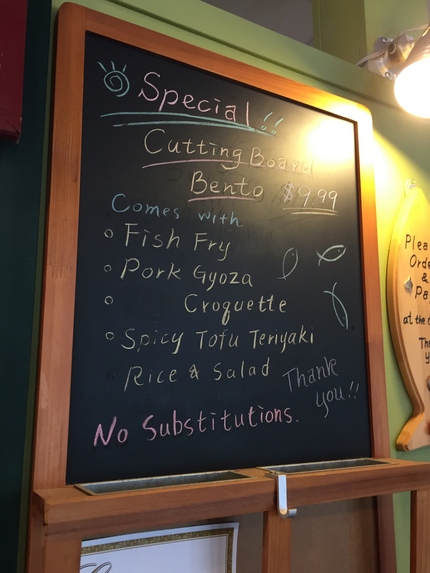 Special!!
Cutting Board
Bento $9.99
Comes with
Fish Fry
Pork Gyoza
Croquette
Spicy Tofu Teriyaki
Rice & Salad
Thank
you!!
No Substitutions.
Plea
Orde
&
Pa
at the c
Th
y